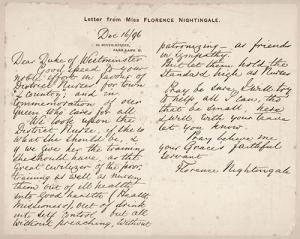 Letter from Miss FLORENCE NIGHTINGALE.
Dec 16/96
10, SOUTH STREET,
PARK LANE. W.
Dear Duke of Westminster
Good speed to your
noble effort in favour of
District Nurses for town
& Country; and in
Commemoration of our
Queen who cares for all.
We look upon the
District Nurse, if she is
what she should be, &
if we give her the training
she should have, as the
great civilizer of the poor,
training as well as nursing
them out of ill health
into good health (Health
Missioners), out of drink
into self control, but all
without preaching, without
patronizing – as friends
in sympathy.
But let them hold the
Standard high as Nurses
Pray be sure I will try
to help all I can, tho'
that be small, here
I will, with your leave
let you know.
Pray believe me
your Grace's faithful
servant
Florence Nightingale